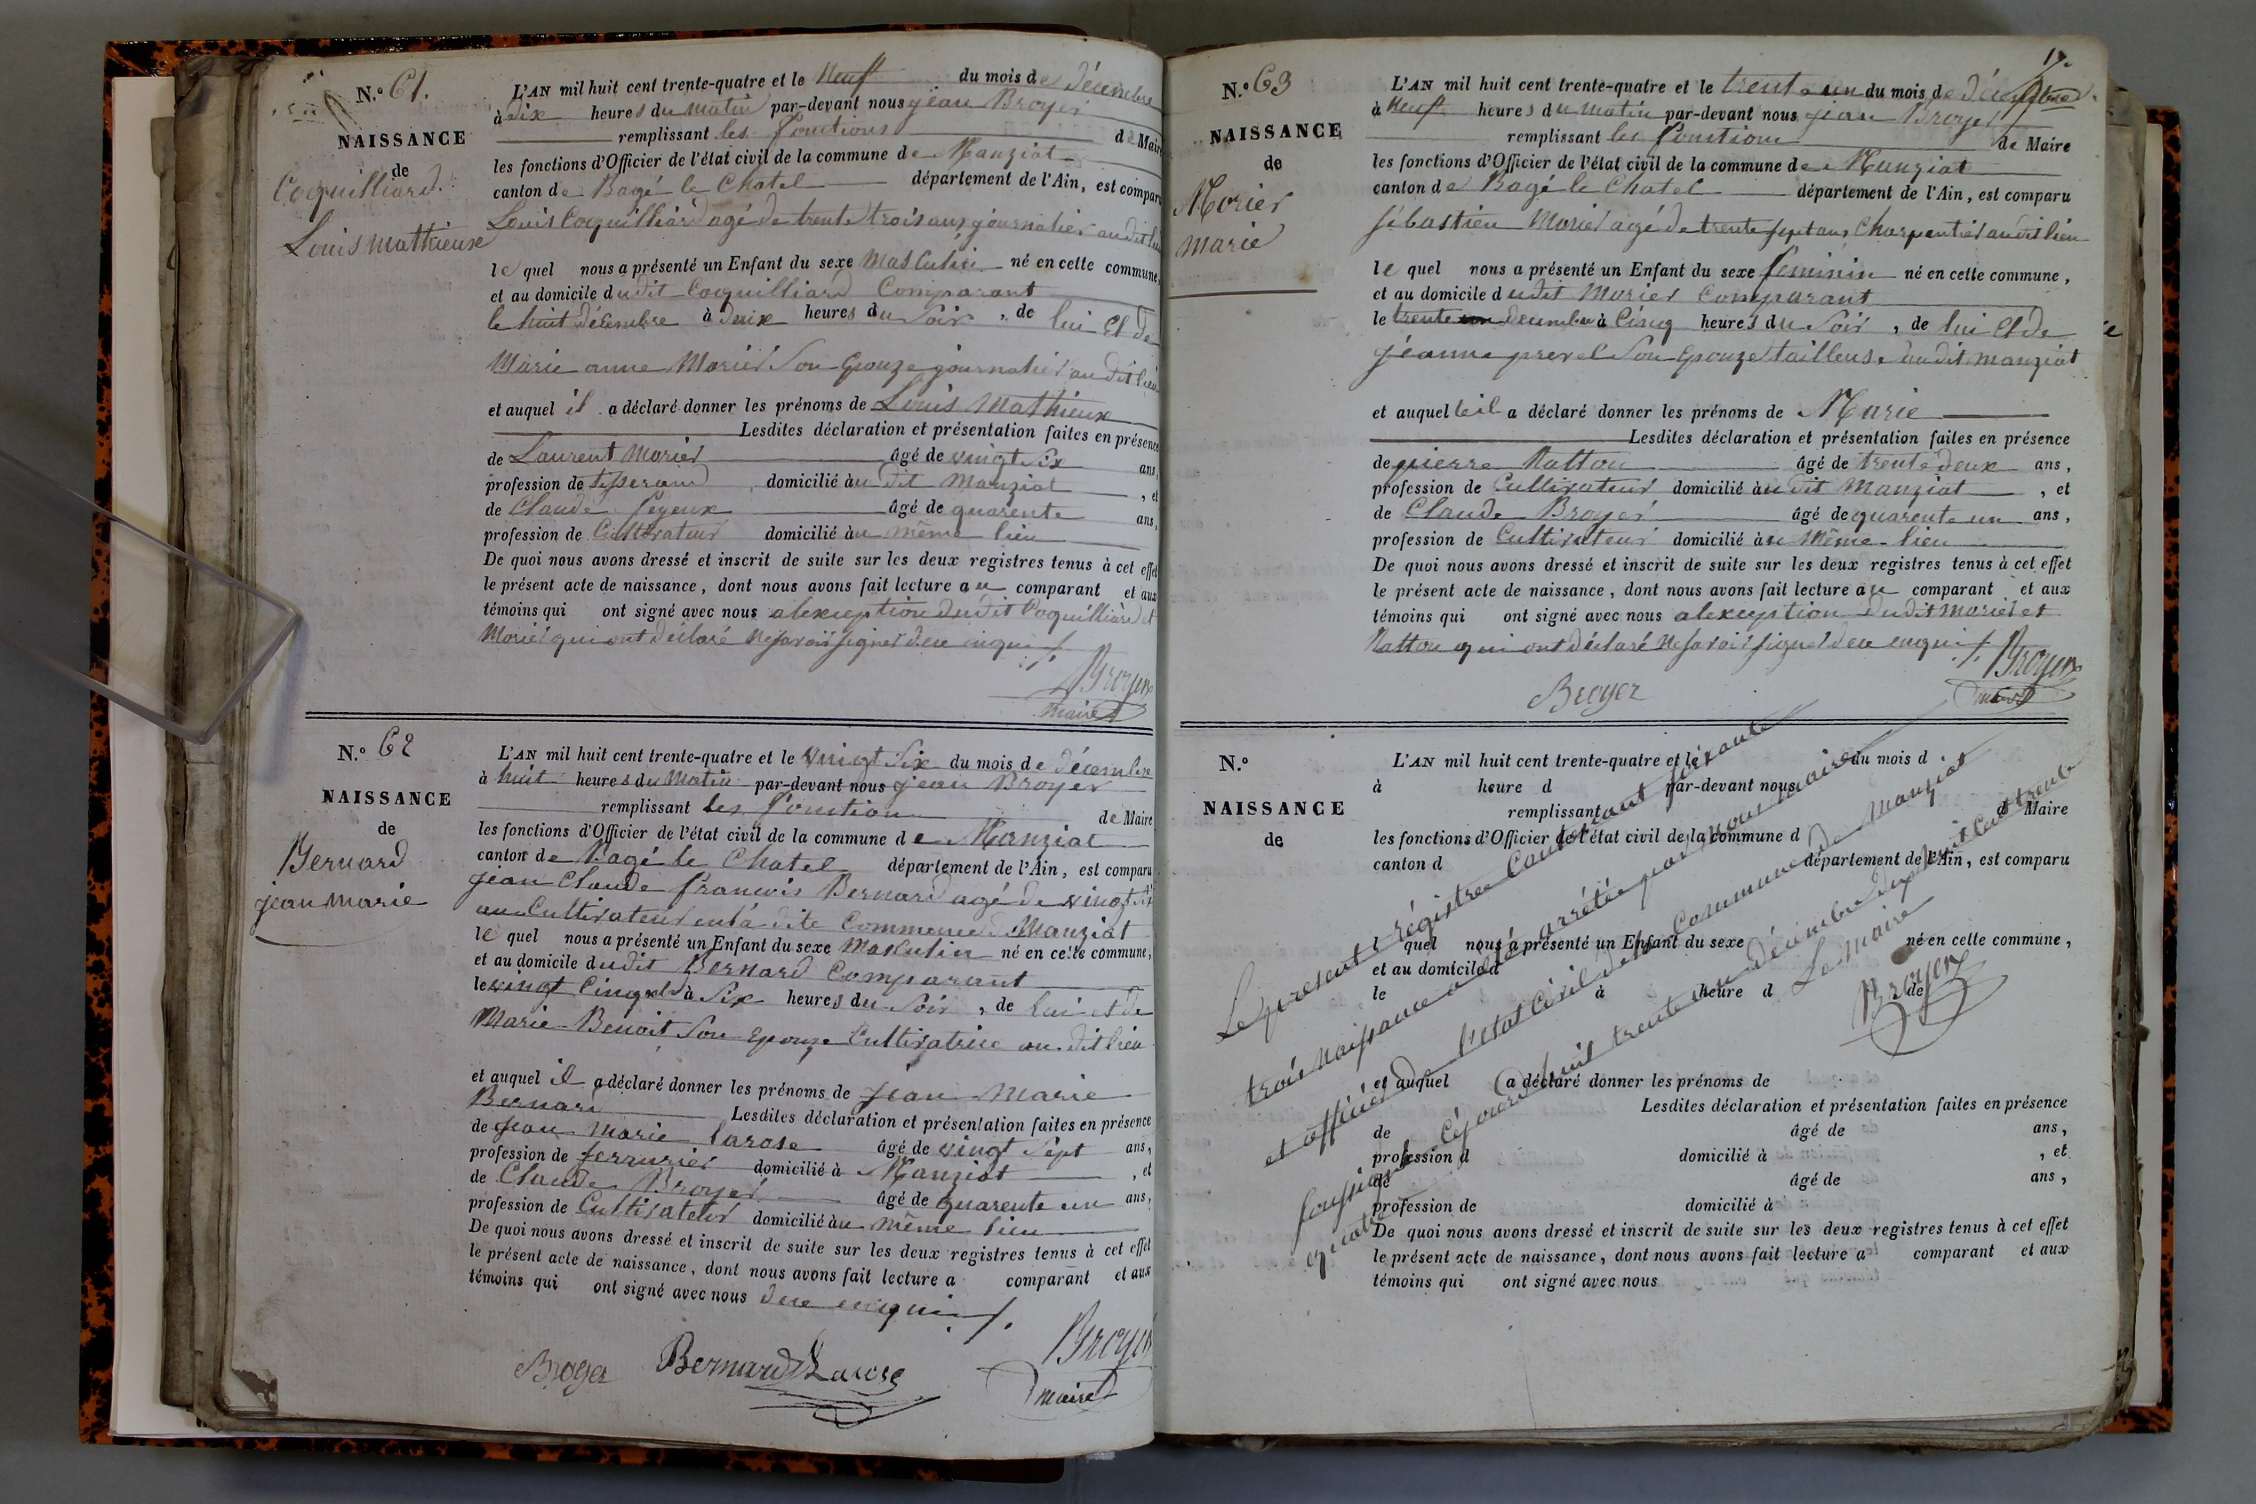 N.o 61.
NAISSANCE
de
Coquilliard
Louis Mathieux
L'AN mil huit cent trente-quatre et le Neuf du mois de décembre
à dix heures du matin par-devant nous jean Broyer
remplissant les fonctions de Maire
les fonctions d'Officier de l'état civil de la commune de Manziat
canton de Bagé le Chatel département de l'Ain, est comparu
Louis Coquilliard agé de trente trois ans journalier au dit lieu
le quel nous a présenté un Enfant du sexe Masculin né en cette commune,
et au domicile dudit Coquilliard Comparant
le huit décembre à heures du Soir, de lui Et de
Marie anne Morier Son Epouze journalier au dit lieu
et auquel il a déclaré donner les prénoms de Louis Mathieux
Lesdites déclaration et présentation faites en présence
de Laurent Morier âgé de vingt Six ans,
profession de tisserand domicilié au dit Manziat, et
de Claude feyeux âgé de quarente ans,
profession de Cultivateur domicilié au même lieu
De quoi nous avons dressé et inscrit de suite sur les deux registres tenus à cet effet
le présent acte de naissance, dont nous avons fait lecture au comparant et aux
témoins qui ont signé avec nous alexception dudit Coquilliard et
Morier qui ont déclaré Ne savoir signer de ce enquis /.
Broyer
maire
N.o 62
NAISSANCE
de
Bernard
jean marie
L'AN mil huit cent trente-quatre et le vingt Six du mois de décembre
à huit heures du Matin par-devant nous jean Broyer
remplissant les fonction de Maire
les fonctions d'Officier de l'état civil de la commune de Manziat
canton de Bagé le Chatel département de l'Ain, est comparu
jean Claude francois Bernard agé de vingt Six
an Cultivateur enla dite Commune de Manziat
le quel nous a présenté un Enfant du sexe Masculin né en cette commune,
et au domicile dudit Bernard Comparant
le vingt Cinq à Six heures du Soir, de lui et de
Marie Benoit Son Epouze Cultivatrice au dit lieu
et auquel il a déclaré donner les prénoms de jean Marie
Bernard Lesdites déclaration et présentation faites en présence
de jean Marie larose âgé de vingt Sept ans,
profession de domicilié à Manziat, et
de Claude Broyer âgé de quarente un ans,
profession de Cultivateur domicilié au même lieu
De quoi nous avons dressé et inscrit de suite sur les deux registres tenus à cet effet
le présent acte de naissance, dont nous avons fait lecture a comparant et aux
témoins qui ont signé avec nous de ce enquis /.
Broyer Bernard Larose Broyer
maire
17.
N.o 63
NAISSANCE
de
Morier
marie
L'AN mil huit cent trente-quatre et le trente un du mois de décembre
à Neuf heures du matin par-devant nous jean Broyer
remplissant les fonction de Maire
les fonctions d'Officier de l'état civil de la commune de Manziat
canton de Bagé le Chatel département de l'Ain, est comparu
Sébastien Morier agé de trente sept ans Charpentier au dit lieu
le quel nous a présenté un Enfant du sexe feminin né en cette commune,
et au domicile dudit Morier Comparant
le trente decembre à Cinq heures du Soir, de lui Et de
jeanne prevel Son Epouze tailleuse audit manziat
et auquel il a déclaré donner les prénoms de Marie
Lesdites déclaration et présentation faites en présence
de pierre Natton âgé de trente deux ans,
profession de Cultivateur domicilié au dit Manziat, et
de Claude Broyer âgé de quarente un ans,
profession de Cultivateur domicilié au même lieu
De quoi nous avons dressé et inscrit de suite sur les deux registres tenus à cet effet
le présent acte de naissance, dont nous avons fait lecture au comparant et aux
témoins qui ont signé avec nous alexception dudit Morier et
Natton qui ont déclaré Ne savoir signer de ce enquis /.
Broyer
Broyer
maire
N.o
NAISSANCE
de
L'AN mil huit cent trente-quatre et le du mois d
à heure d par-devant nous
remplissant d Maire
les fonctions d'Officier de l'état civil de la commune d
canton d département de l'Ain, est comparu
l quel nous a présenté un Enfant du sexe né en cette commune,
et au domicile d
le à heure d, de
et auquel a déclaré donner les prénoms de
Lesdites déclaration et présentation faites en présence
de âgé de ans,
profession d domicilié à, et
de âgé de ans,
profession de domicilié à
De quoi nous avons dressé et inscrit de suite sur les deux registres tenus à cet effet
le présent acte de naissance, dont nous avons fait lecture a comparant et aux
témoins qui ont signé avec nous
Le present régistre Contenant soixante
trois Naissance a été arrêtée par nous maire
et officier de l'état Civil de la Commune de Manziat
soussigné Cejourdhuit trente un décembre dix huit cent trente
quatre
Le Maire
Broyer